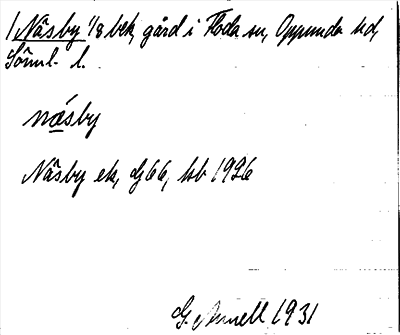 1 Näsby 1/8 bek, gård i Floda sn, Oppunda hd,
Söml. l.
næsby
Näsby ek, G66, kb 1926
G. Arnell 1931